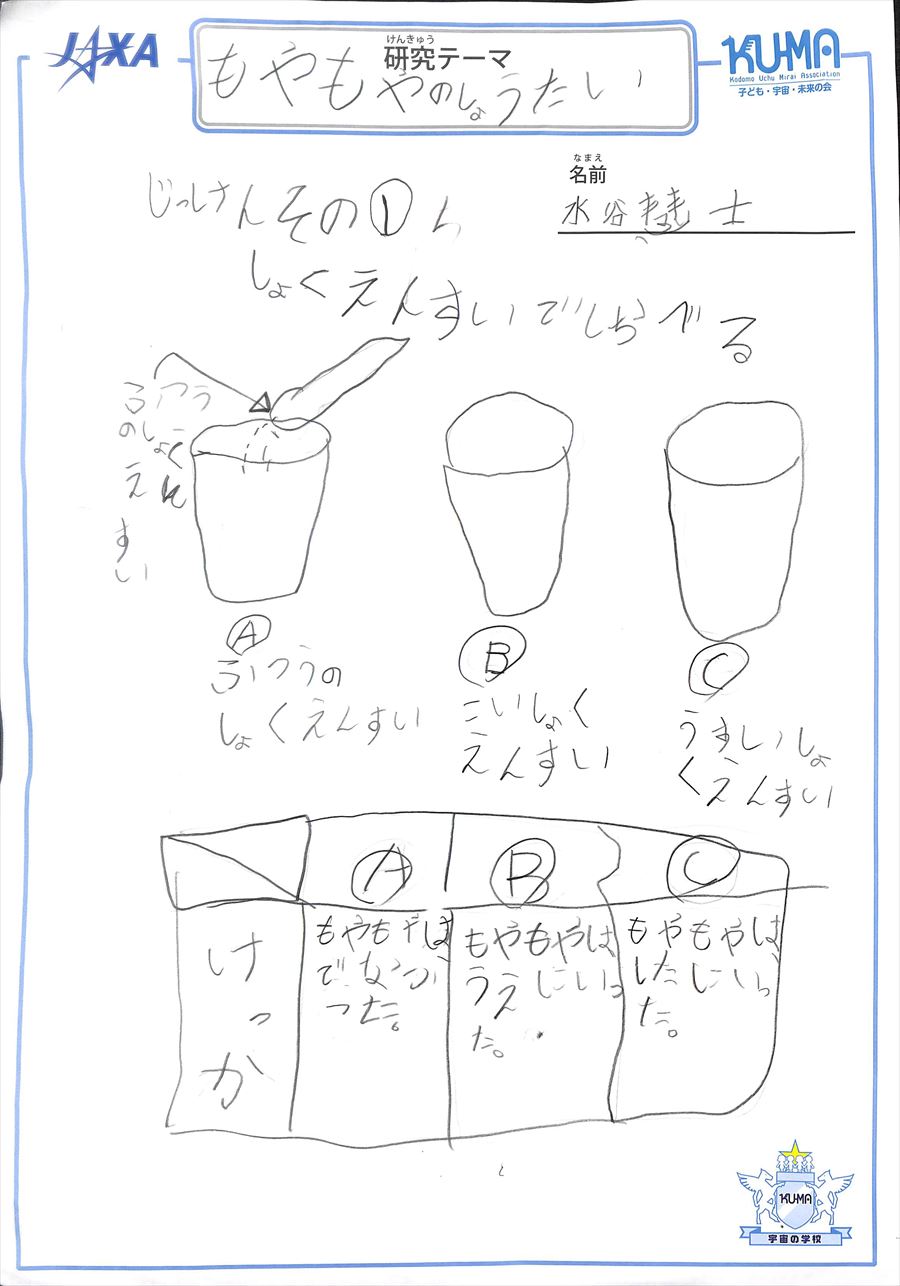 JAXA
けんきゅう
研究テーマ
もやもやのしょうたい
KU-MA
Kodomo Uchu Mirai Association
子ども・宇宙・未来の会
なまえ
名前
水谷 士
じっけんその①
しょくえんすいでしらべる
ふつう
のしょく
えん
すい
Ⓐ
ふつうの
しょくえんすい
Ⓑ
こいしょく
えんすい
Ⓒ
うすいしょ
くえんすい
Ⓐ
Ⓑ
Ⓒ
けっか
もやもやは
でなか
った。
もやもやは
うえにいっ
た。
もやもやは
したにいっ
た。
KU-MA
宇宙の学校